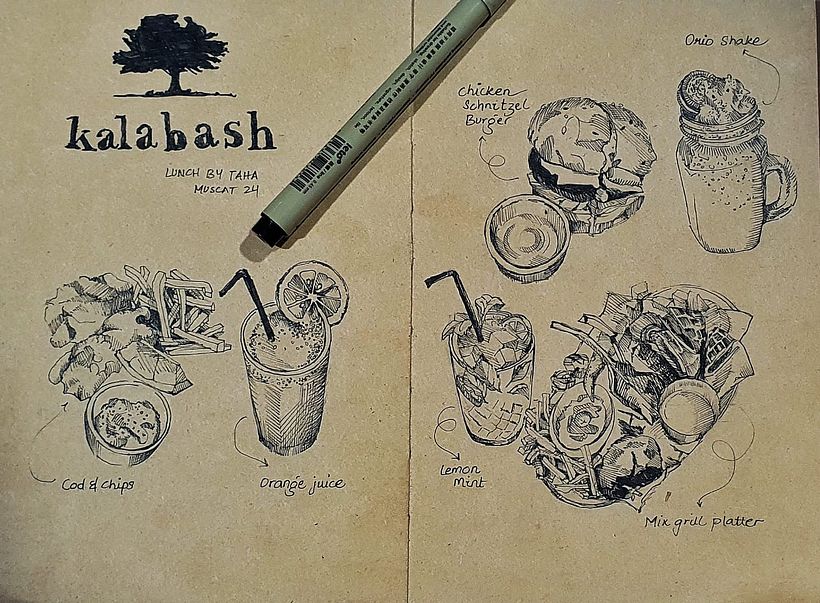 kalabash
LUNCH BY TAHA
MUSCAT 24
Cod & chips
Orange juice
Chicken
Schnitzel
Burger
Orio Shake
Lemon
Mint
Mix grill platter